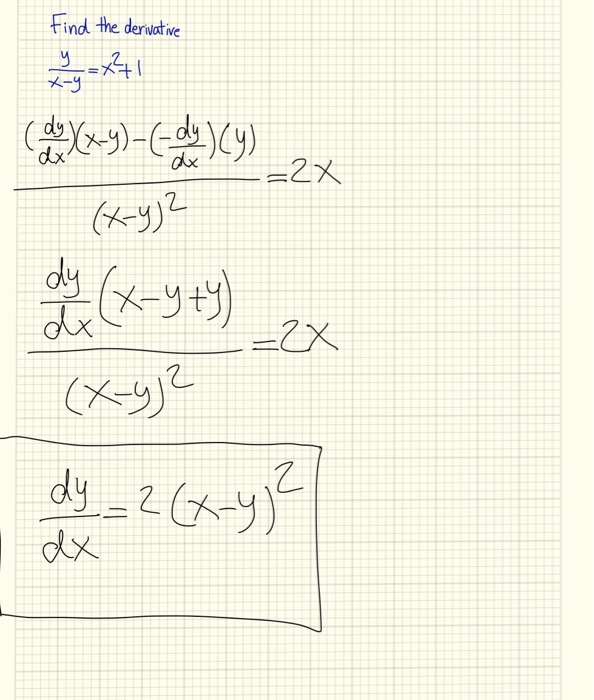 Find the derivative
y/(x-y) = x²+1
((dy/dx)(x-y)-(-dy/dx)(y))/(x-y)² = 2x
(dy/dx (x-y+y))/(x-y)² = 2x
dy/dx = 2(x-y)²